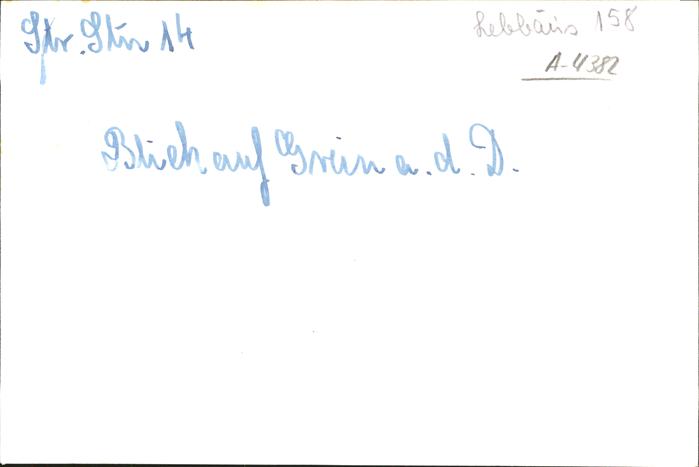 Str. Stn 14
Lebbäus 158
A-4382
Blick auf Grein a. d. D.